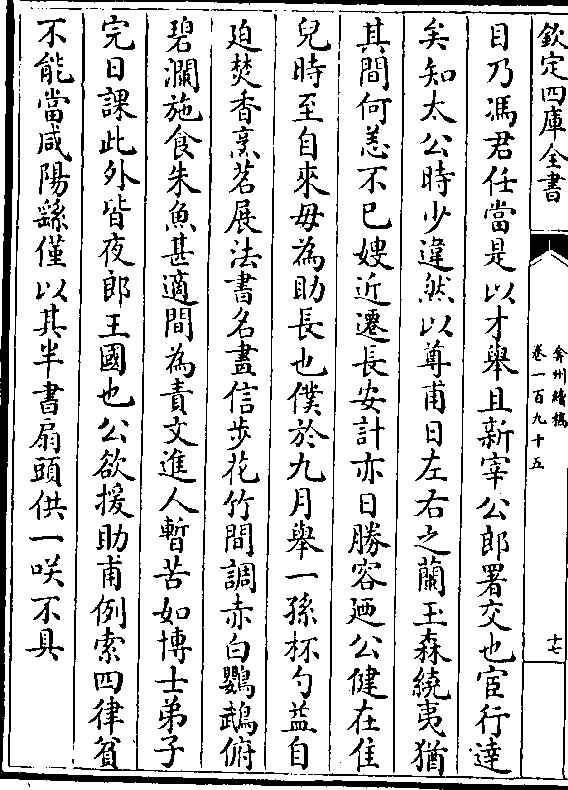 欽定四庫全書
弇州續稿
卷一百九十五
十七
目乃馮君任當是以才舉且新宰公郎署交也宦行達
矣知太公時少違然以尊甫日左右之蘭玉森繞夷猶
其間何恙不已嫂近遷長安計亦日勝容廼公健在佳
兒時至自來毋為助長也僕於九月舉一孫杯勺益自
廹焚香烹茗展法書名畫信步花竹間調赤白鸚鵡俯
碧瀾施食朱魚甚適間為責文進人暫苦如博士弟子
完日課此外皆夜郎王國也公欲援助甫例索四律貧
不能當咸陽繇僅以其半書扇頭供一咲不具